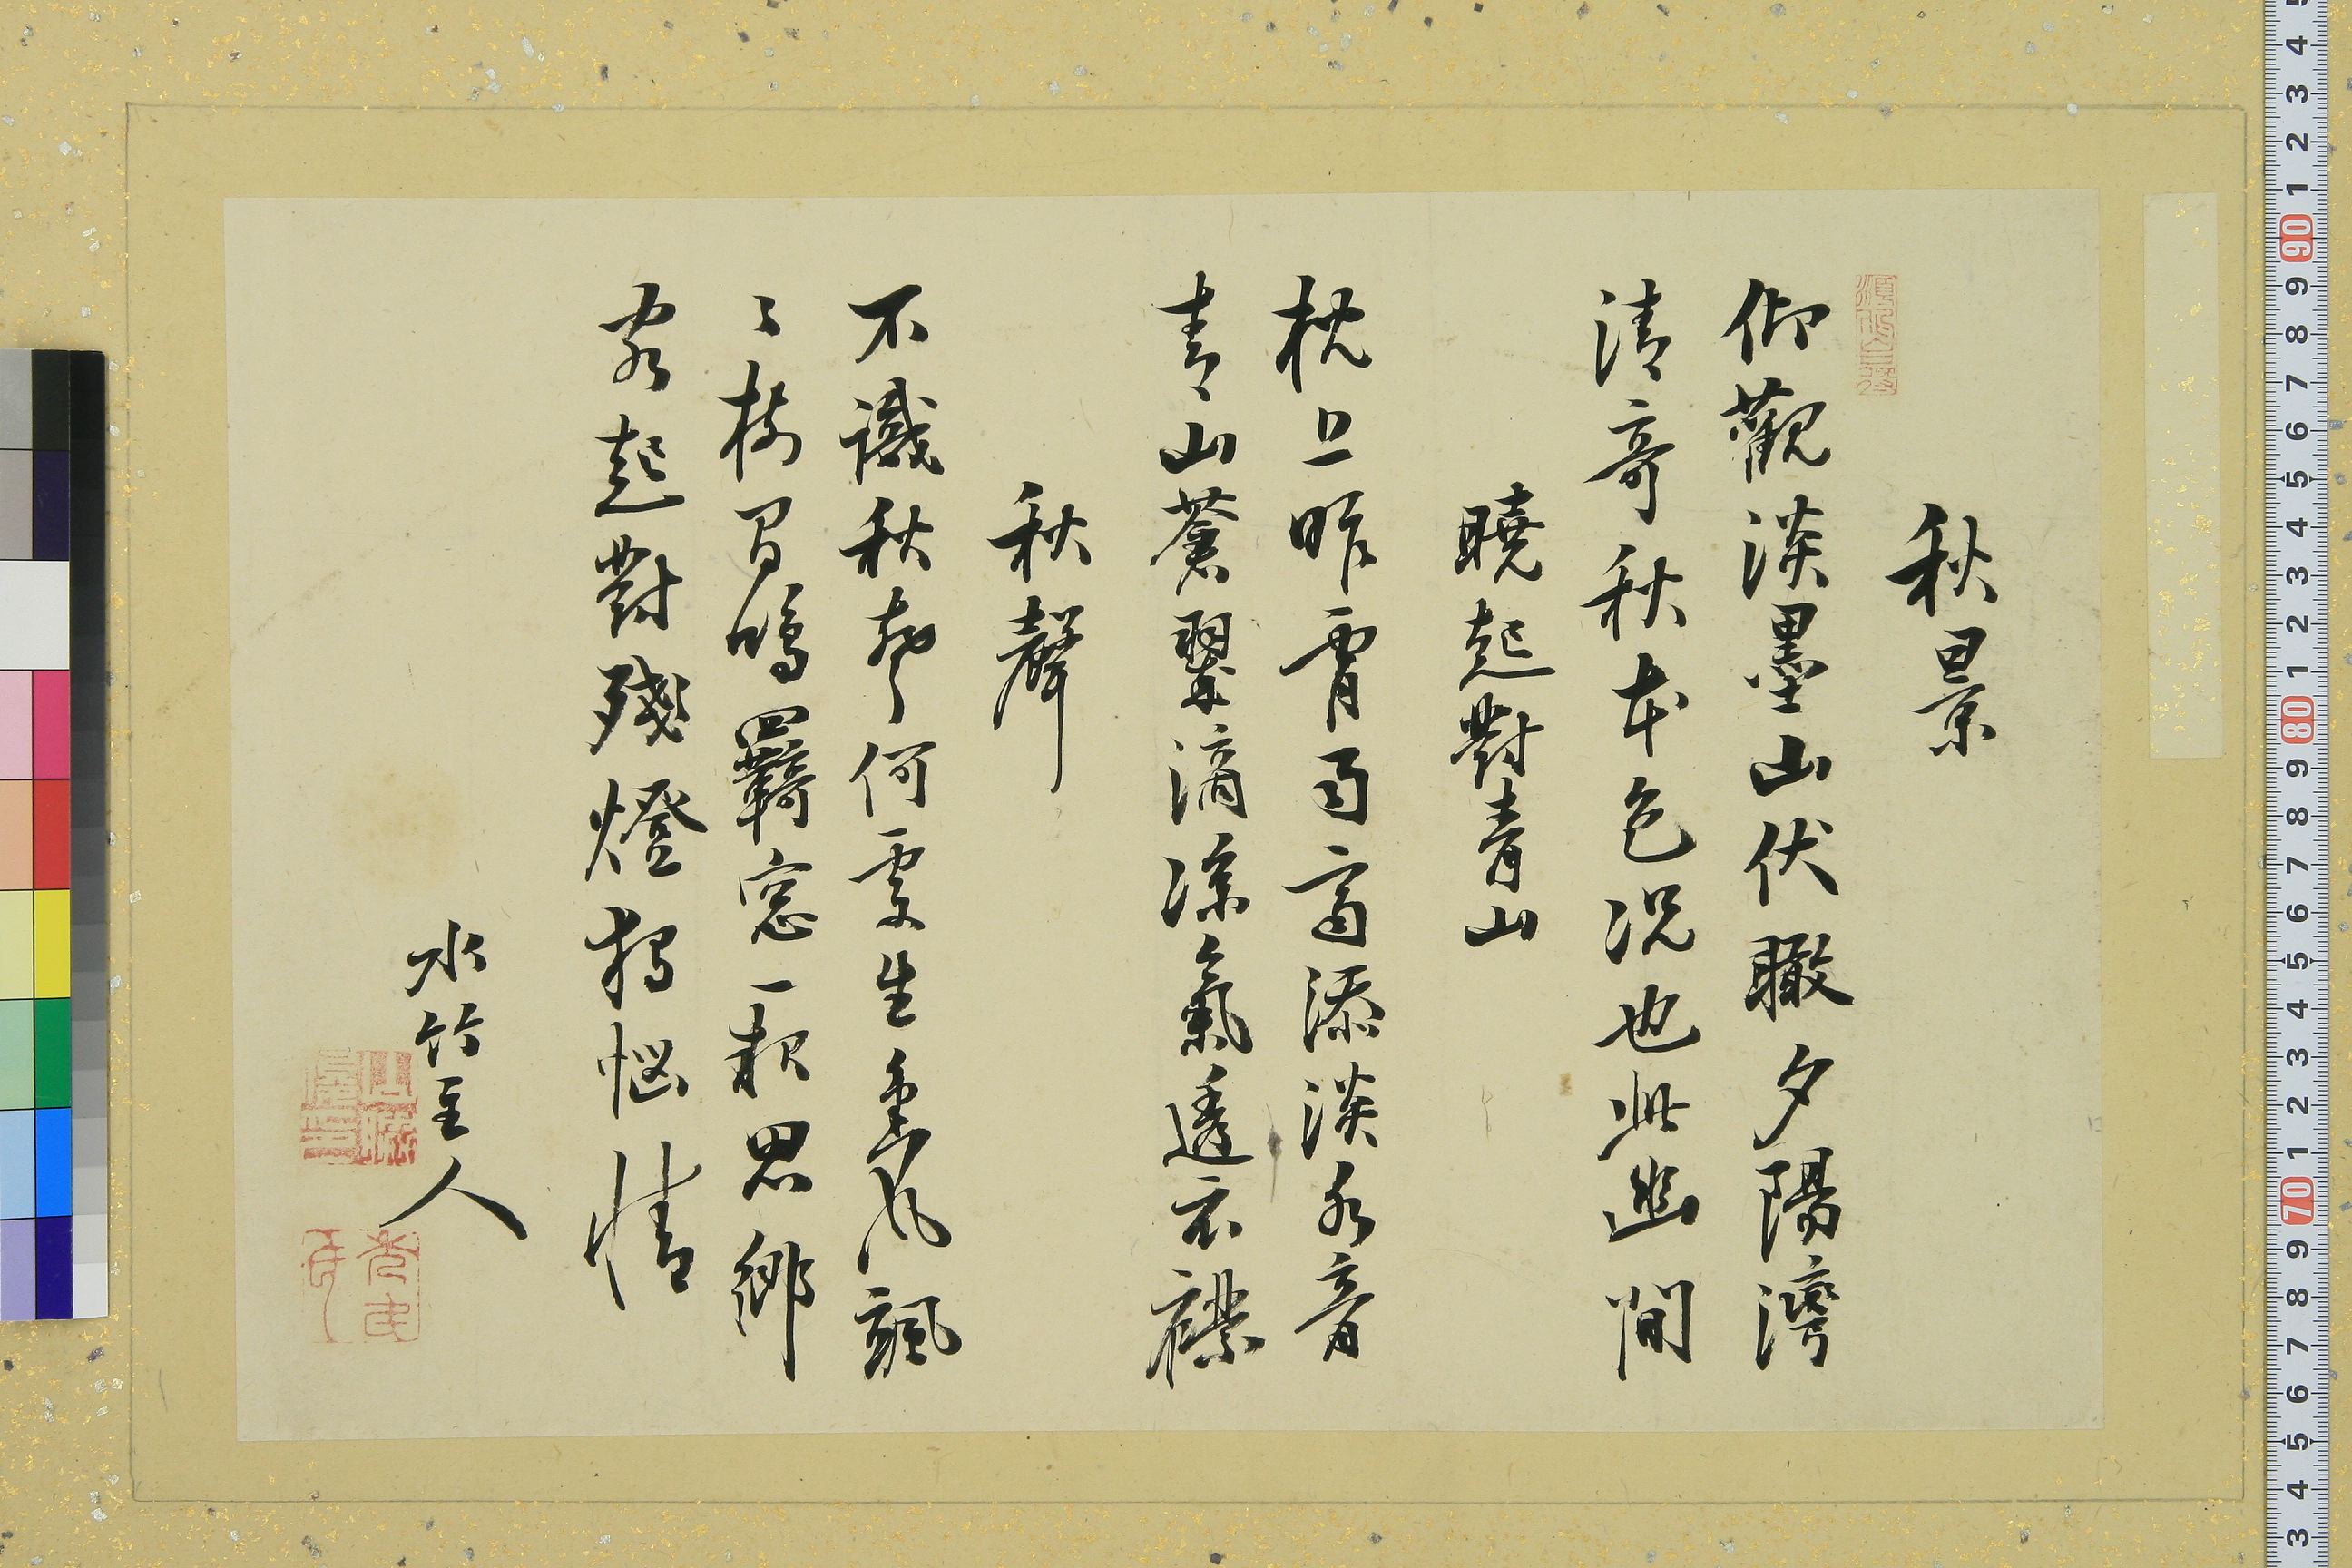 秋景
仰觀淡墨山伏瞰夕陽灣
清奇秋本色況也此幽間
曉起對青山
枕上昨宵雨添淡水音
青山蒼翠滴涼氣透衣襟
秋聲
不識秋聲何處生風颯
〻樹間鳴羈窓一思鄉
客起對殘燈獨惱情
水竹主人